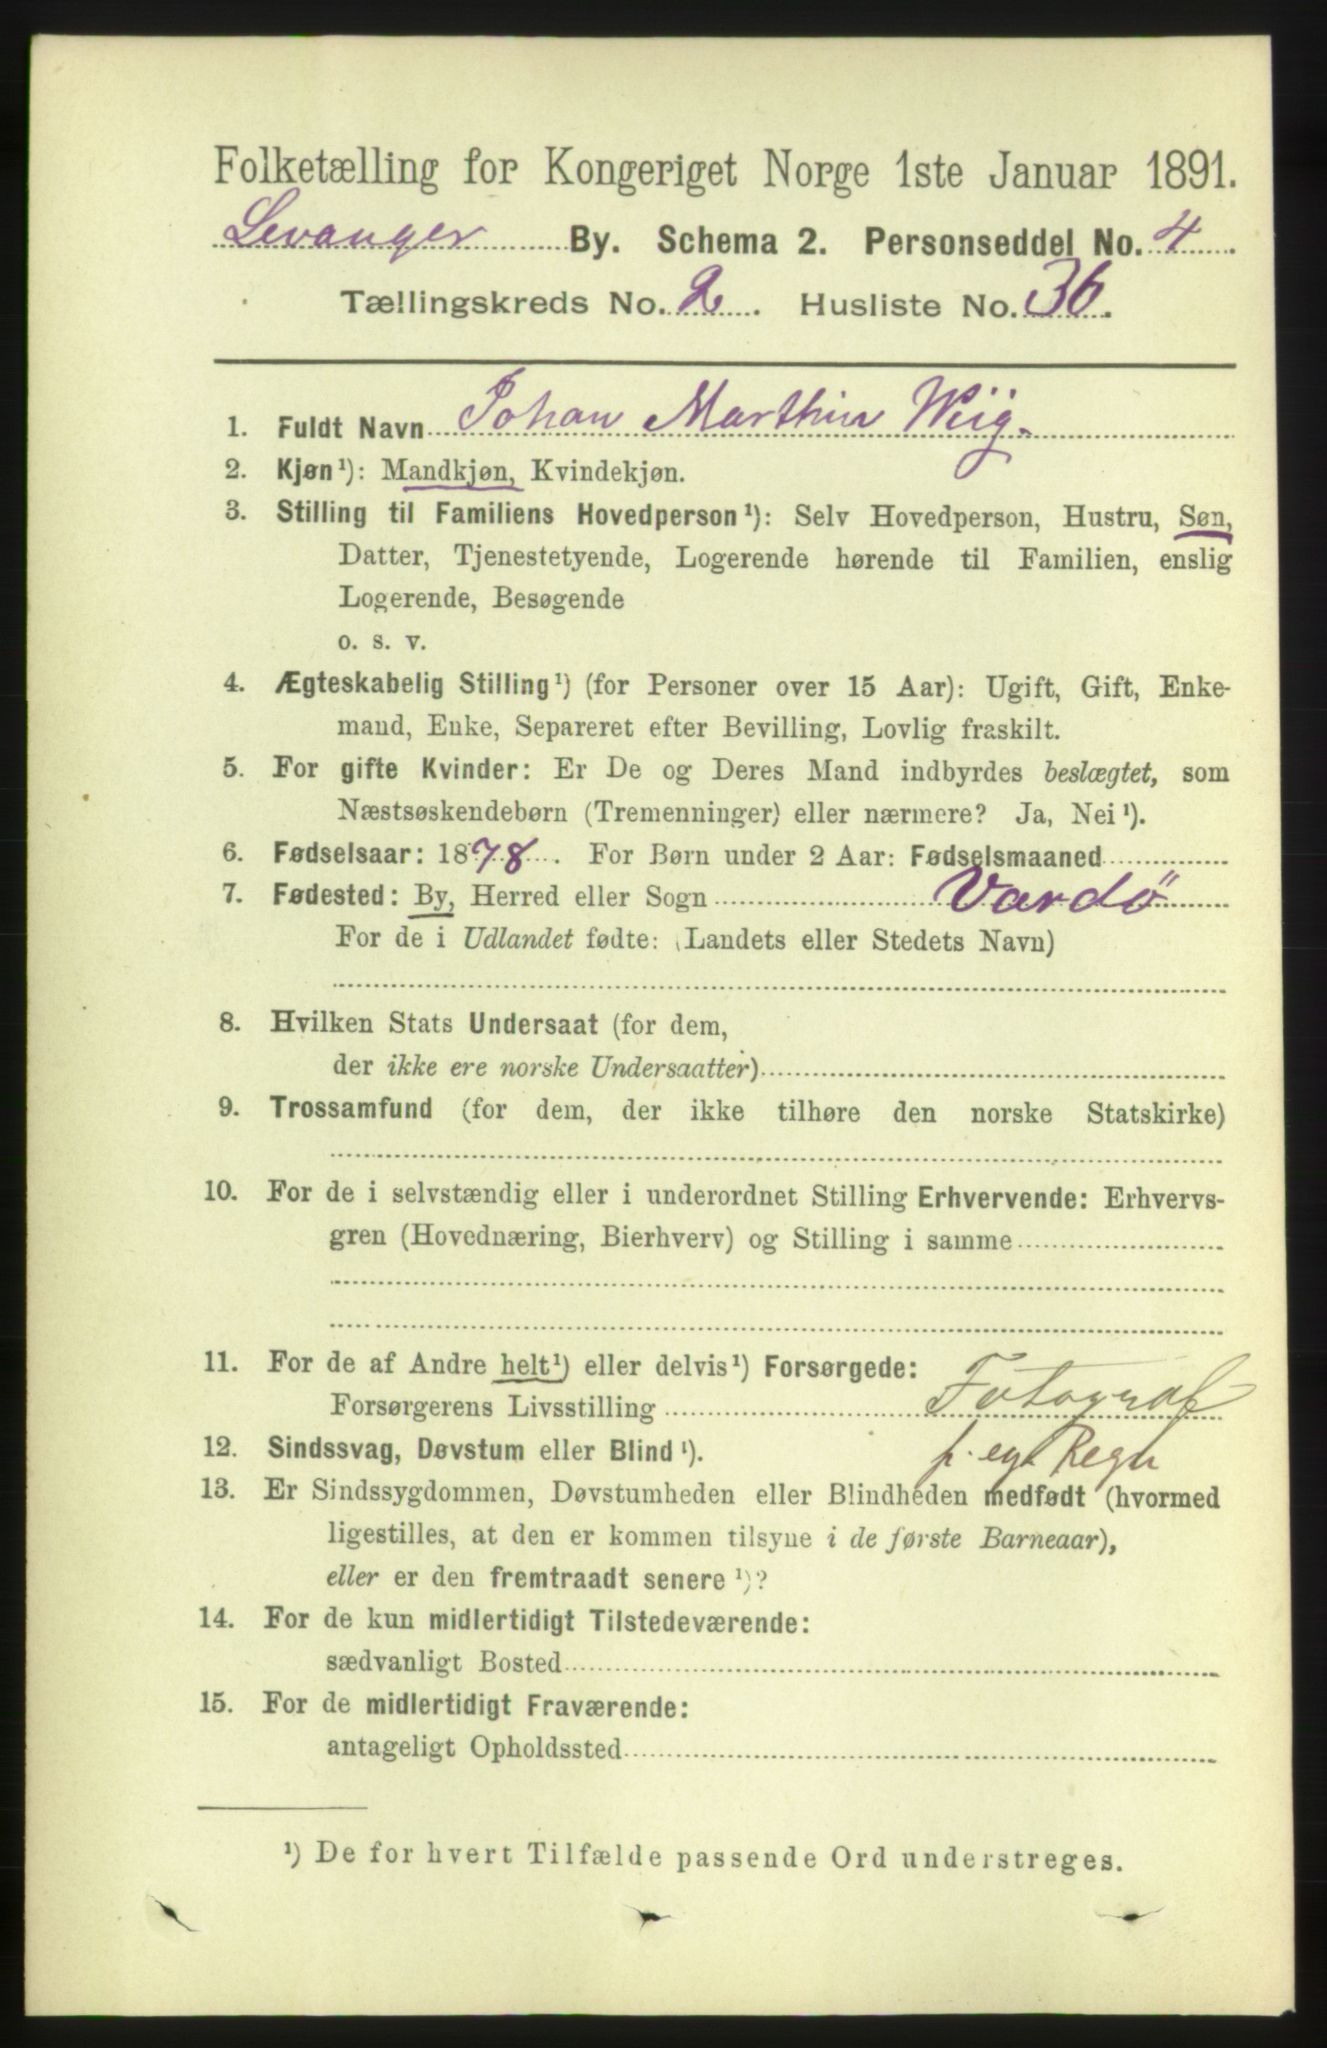 Folketælling for Kongeriget Norge 1ste Januar 1891.
Levanger By. Schema 2. Personseddel No. 4
Tællingskreds No. 2. Husliste No. 36.
1. Fuldt Navn Johan Marthin Wiig.
2. Kjøn¹): Mandkjøn, Kvindekjøn.
3. Stilling til Familiens Hovedperson¹): Selv Hovedperson, Hustru, Søn,
Datter, Tjenestetyende, Logerende hørende til Familien, enslig
Logerende, Besøgende
o. s. v.
4. Ægteskabelig Stilling¹) (for Personer over 15 Aar): Ugift, Gift, Enke-
mand, Enke, Separeret efter Bevilling, Lovlig fraskilt.
5. For gifte Kvinder: Er De og Deres Mand indbyrdes beslægtet, som
Næstsøskendebørn (Tremenninger) eller nærmere? Ja, Nei¹).
6. Fødselsaar: 1878. For Børn under 2 Aar: Fødselsmaaned
7. Fødested: By, Herred eller Sogn Vardö
For de i Udlandet fødte: (Landets eller Stedets Navn)
8. Hvilken Stats Undersaat (for dem,
der ikke ere norske Undersaatter)
9. Trossamfund (for dem, der ikke tilhøre den norske Statskirke)
10. For de i selvstændig eller i underordnet Stilling Erhvervende: Erhvervs-
gren (Hovednæring, Bierhverv) og Stilling i samme
11. For de af Andre helt¹) eller delvis¹) Forsørgede:
Forsørgerens Livsstilling Fotograf
12. Sindssvag, Døvstum eller Blind¹). f. egen Regn
13. Er Sindssygdommen, Døvstumheden eller Blindheden medfødt (hvormed
ligestilles, at den er kommen tilsyne i de første Barneaar),
eller er den fremtraadt senere¹)?
14. For de kun midlertidigt Tilstedeværende:
sædvanligt Bosted
15. For de midlertidigt Fraværende:
antageligt Opholdssted
¹) De for hvert Tilfælde passende Ord understreges.